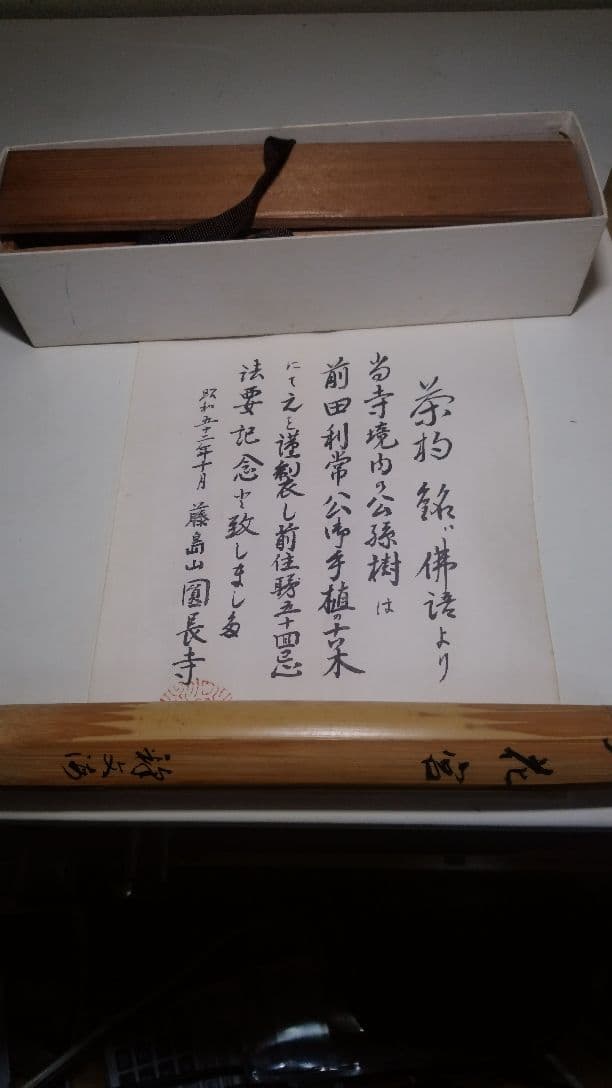 茶杓 銘は佛語より
当寺境内の公孫樹は
前田利常公御手植の古木
にて之を謹製し前住職五十回忌
法要記念と致しました
昭和五十二年十月 藤島山 圓長寺
花宮